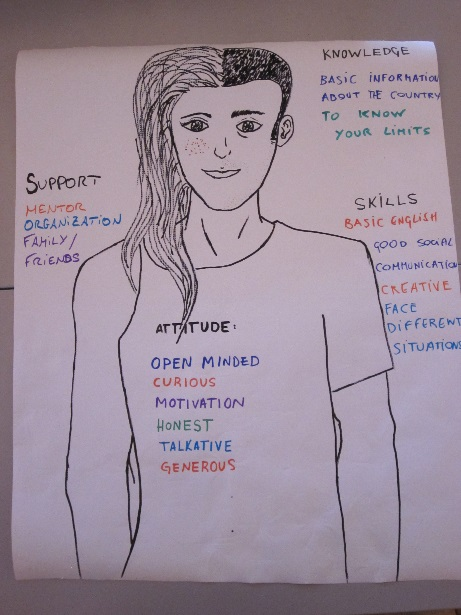 KNOWLEDGE
BASIC INFORMATION
ABOUT THE COUNTRY
TO KNOW
YOUR LIMITS
SUPPORT
MENTOR
ORGANIZATION
FAMILY/
FRIENDS
SKILLS
BASIC ENGLISH
GOOD SOCIAL
COMMUNICATION
CREATIVE
FACE
DIFFERENT
SITUATIONS
ATTITUDE:
OPEN MINDED
CURIOUS
MOTIVATION
HONEST
TALKATIVE
GENEROUS